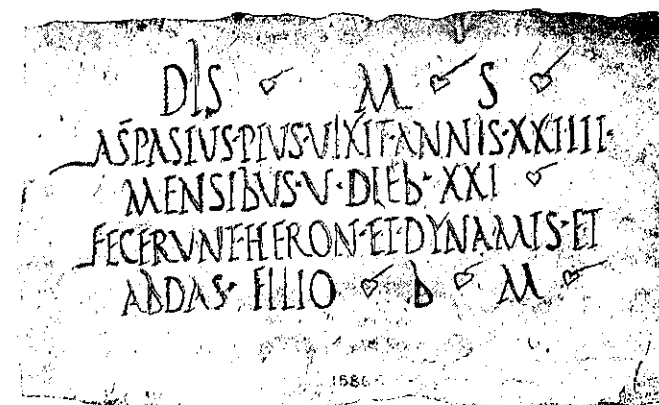 DIS M S
ASPASIVS·PIVS·VIXIT·ANNIS·XXIIII·
MENSIbVS·V·DIEb·XXI
FECERVNT·HERON·ET·DYNAMIS·ET
AbDAS· FILIO b M
1586